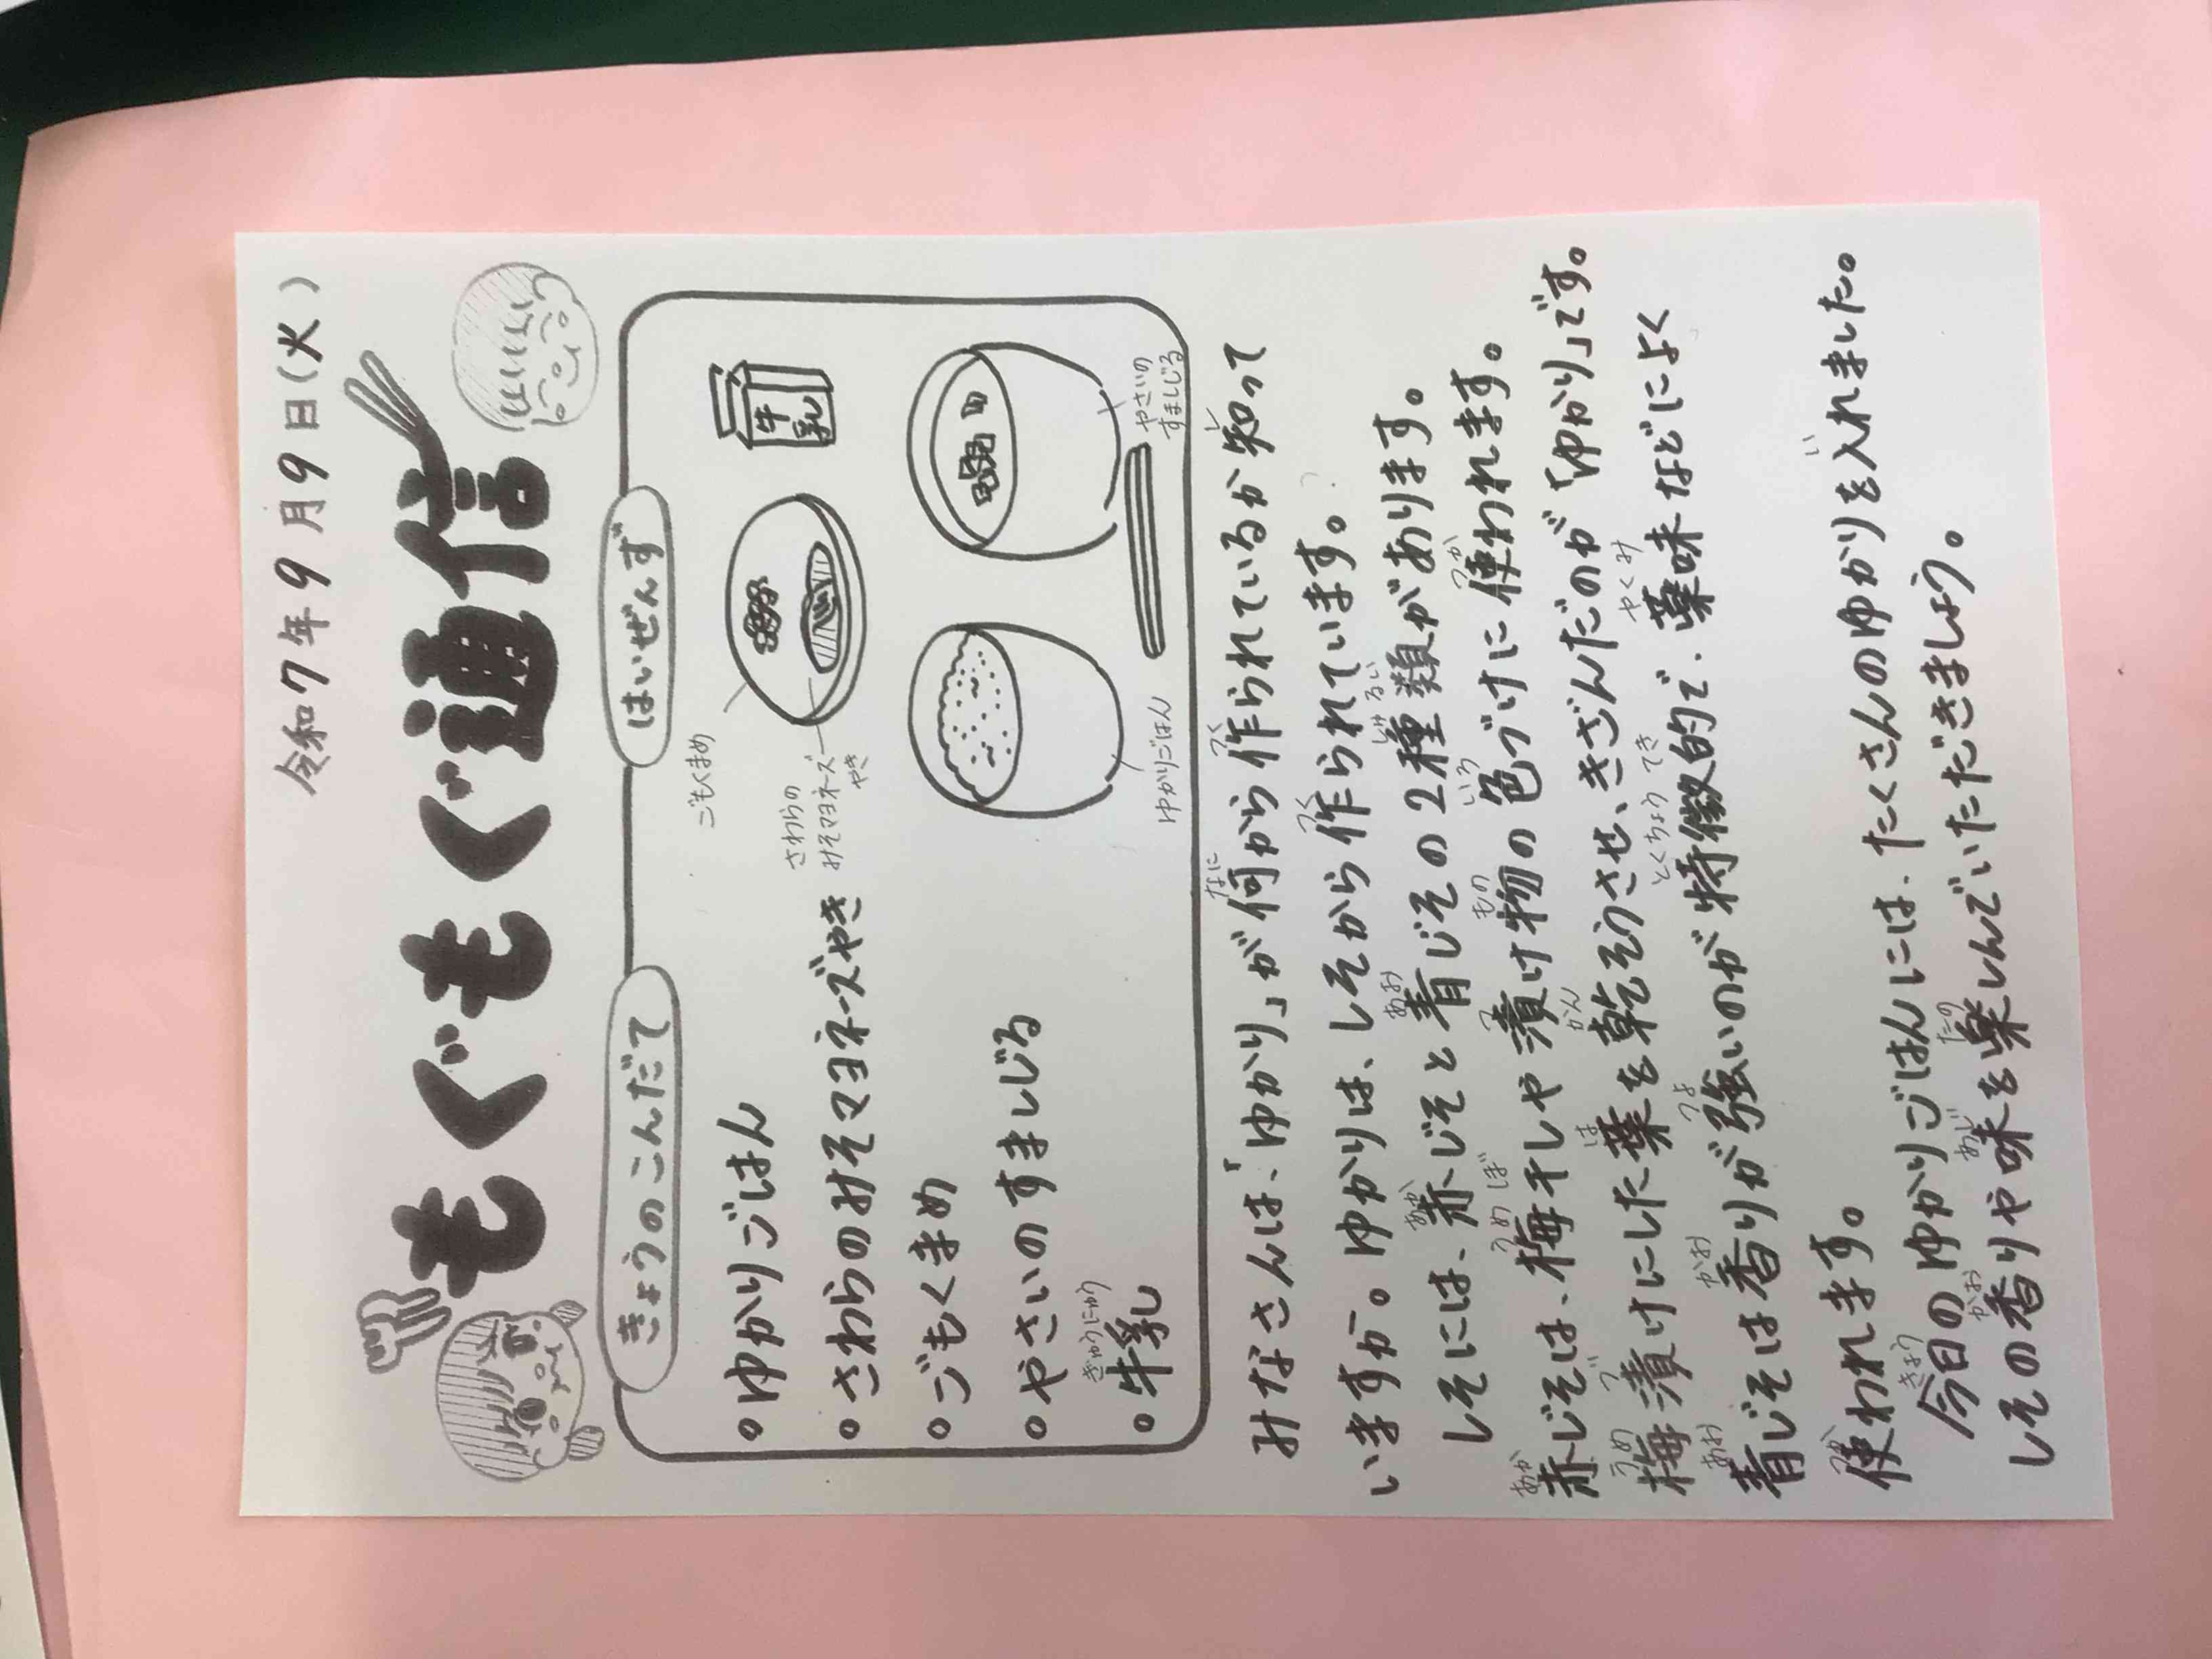 令和7年9月9日(火)
もぐもぐ通信
きょうのこんだて
・ゆかりごはん
・さわらのみそマヨネーズやき
・ごもくまめ
・やさいのすましじる
ぎゅうにゅう
・牛乳
はいぜんず
ごもくまめ
さわらの
みそマヨネーズ
やき
牛
乳
ゆかりごはん
やさいの
すましじる
なに つく し
みなさんは、「ゆかり」が何から作られているか知って
つく
いますか。ゆかりは、しそから作られています。
あか あお しゅるい
しそには、赤じそと青じその2種類があります。
あか うめぼ つ もの いろ つか
赤じそは、梅干しや漬け物の色づけに使われます。
うめ づ は かん
梅漬けにした葉を乾そうさせ、きざんだのが「ゆかり」です。
あお かお つよ とくちょうてき やくみ
青じそは香りが強いのが特徴的で、薬味などによく
つか
使われます。
きょう い
今日のゆかりごはんには、たくさんのゆかりを入れました。
かお あじ たの
しその香りや味を楽しんでいただきましょう。